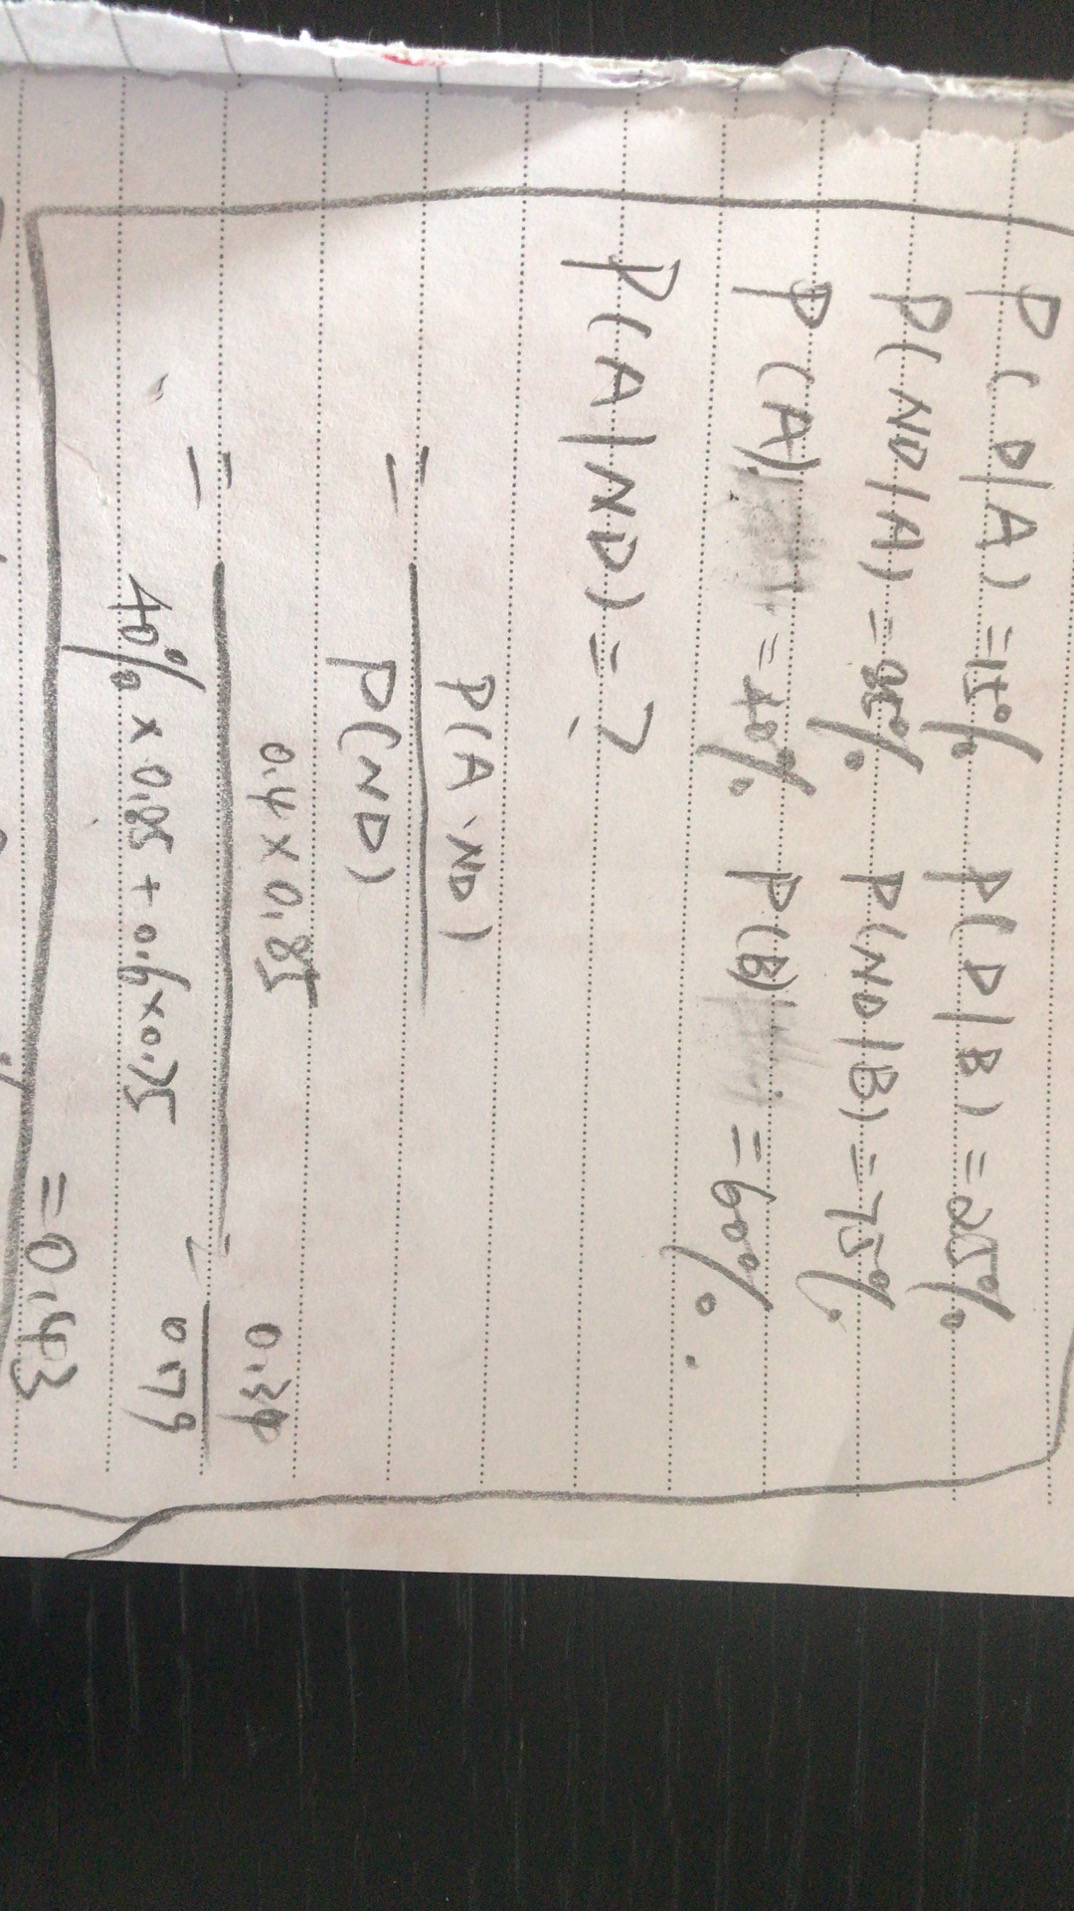 P(D|A) = 15% P(D|B) = 25%
P(ND|A) = 85% P(ND|B) = 75%
P(A) = 40% P(B) = 60%.
P(A|ND) = ?
= P(A∩ND) / P(ND)
= 0.4 × 0.85 / 40% × 0.85 + 0.6 × 0.75 = 0.34 / 0.79
= 0.43